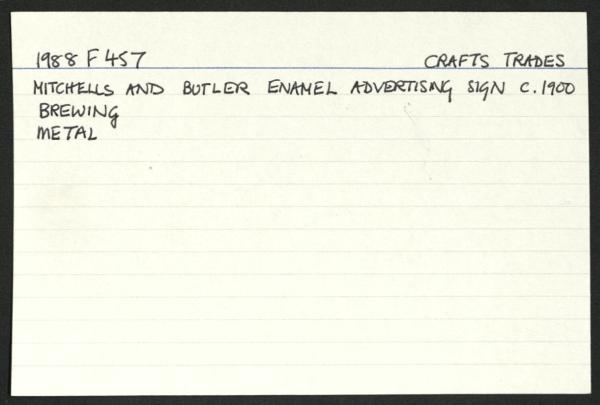 1988 F 457 CRAFTS TRADES
MITCHELLS AND BUTLER ENAMEL ADVERTISING SIGN C.1900
BREWING
METAL